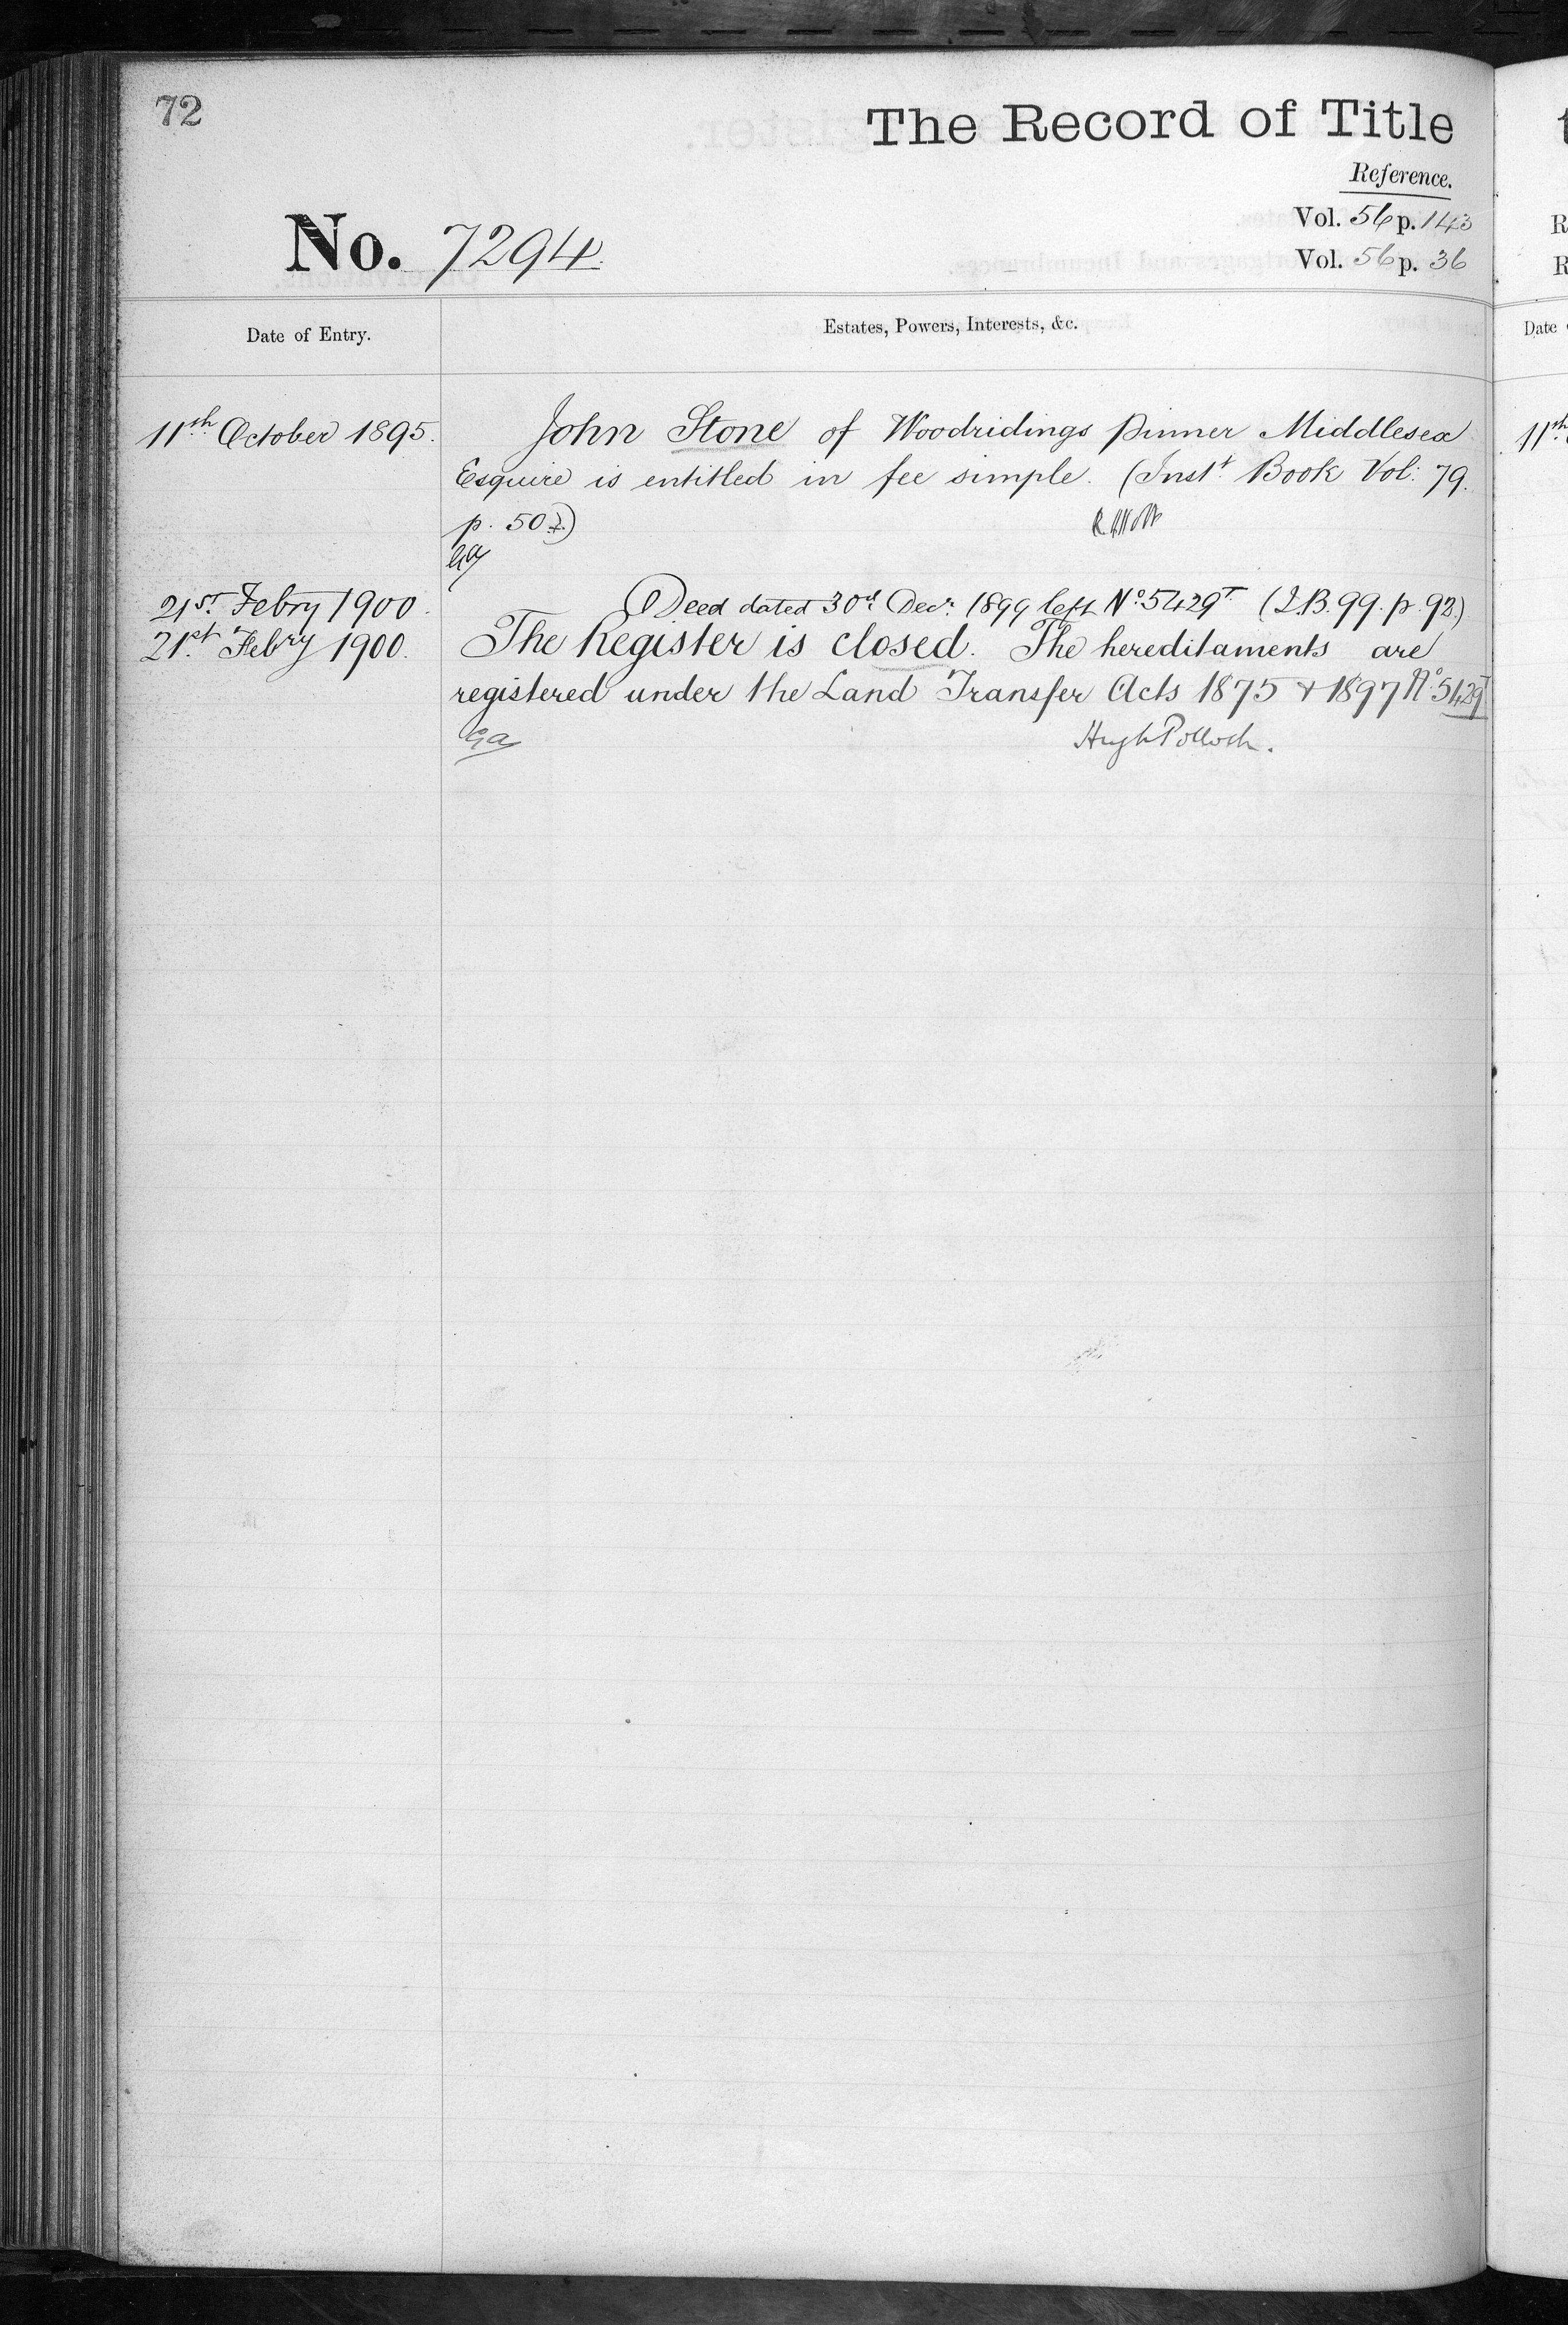 72
The Record of Title
Reference.
Vol. 56 p. 143
No. 7294.
Vol. 56 p. 36
Date of Entry.
Estates, Powers, Interests, &c.
11th October 1895.
John Stone of Woodridings Pinner Middlesex
Esquire is entitled in fee simple. (Inst. Book Vol: 79.
p. 507.)
21st Febry 1900.
Deed dated 30th Decr. 1899 left No. 5429T (I.B. 99. p. 92.)
21st Febry 1900.
The Register is closed. The hereditaments are
registered under the Land Transfer Acts 1875 & 1897 No. 5429T
Ga
Hugh Pollock.
R
R
Date
11th